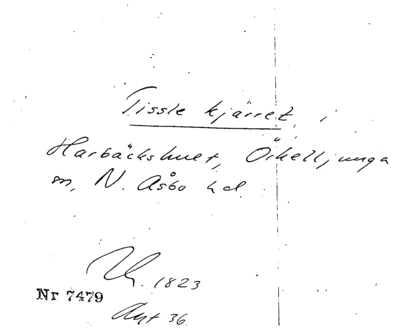 Tissle kjärret, i
Harbäckshult, Örkelljunga
sn, N. Åsbo hd.
1823
Nr 7479
Akt 36